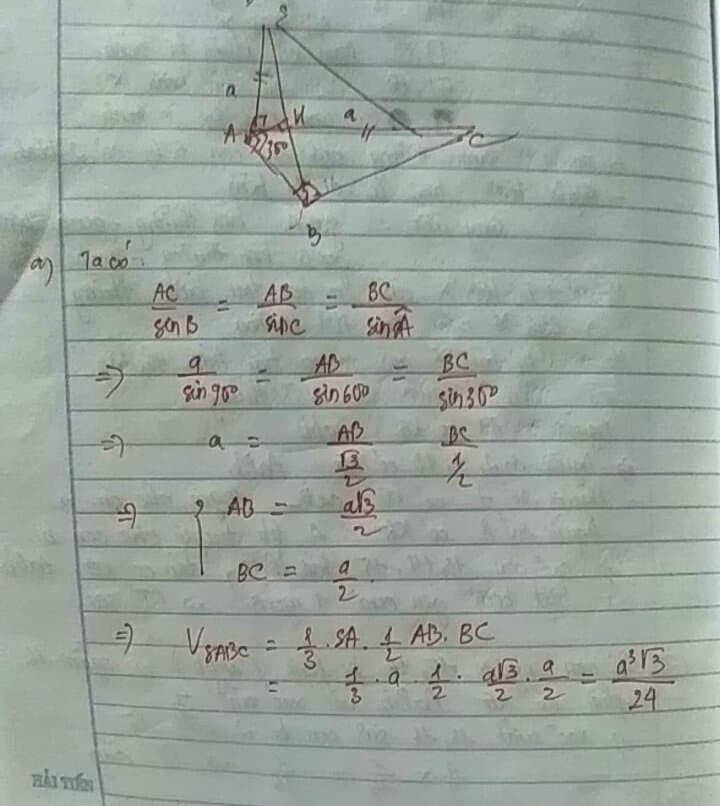 S
a
A
H
a
C
30°
B
a) Ta có:
AC/sin B = AB/sin C = BC/sin Â
⇒ a/sin 90° = AB/sin 60° = BC/sin 30°
⇒ a = AB/(√3/2) BC/(1/2)
⇒ { AB = a√3/2
BC = a/2.
⇒ V_SABC = 1/3 . SA . 1/2 AB . BC
= 1/3 . a . 1/2 . a√3/2 . a/2 = a³√3/24
HẢI TIẾN